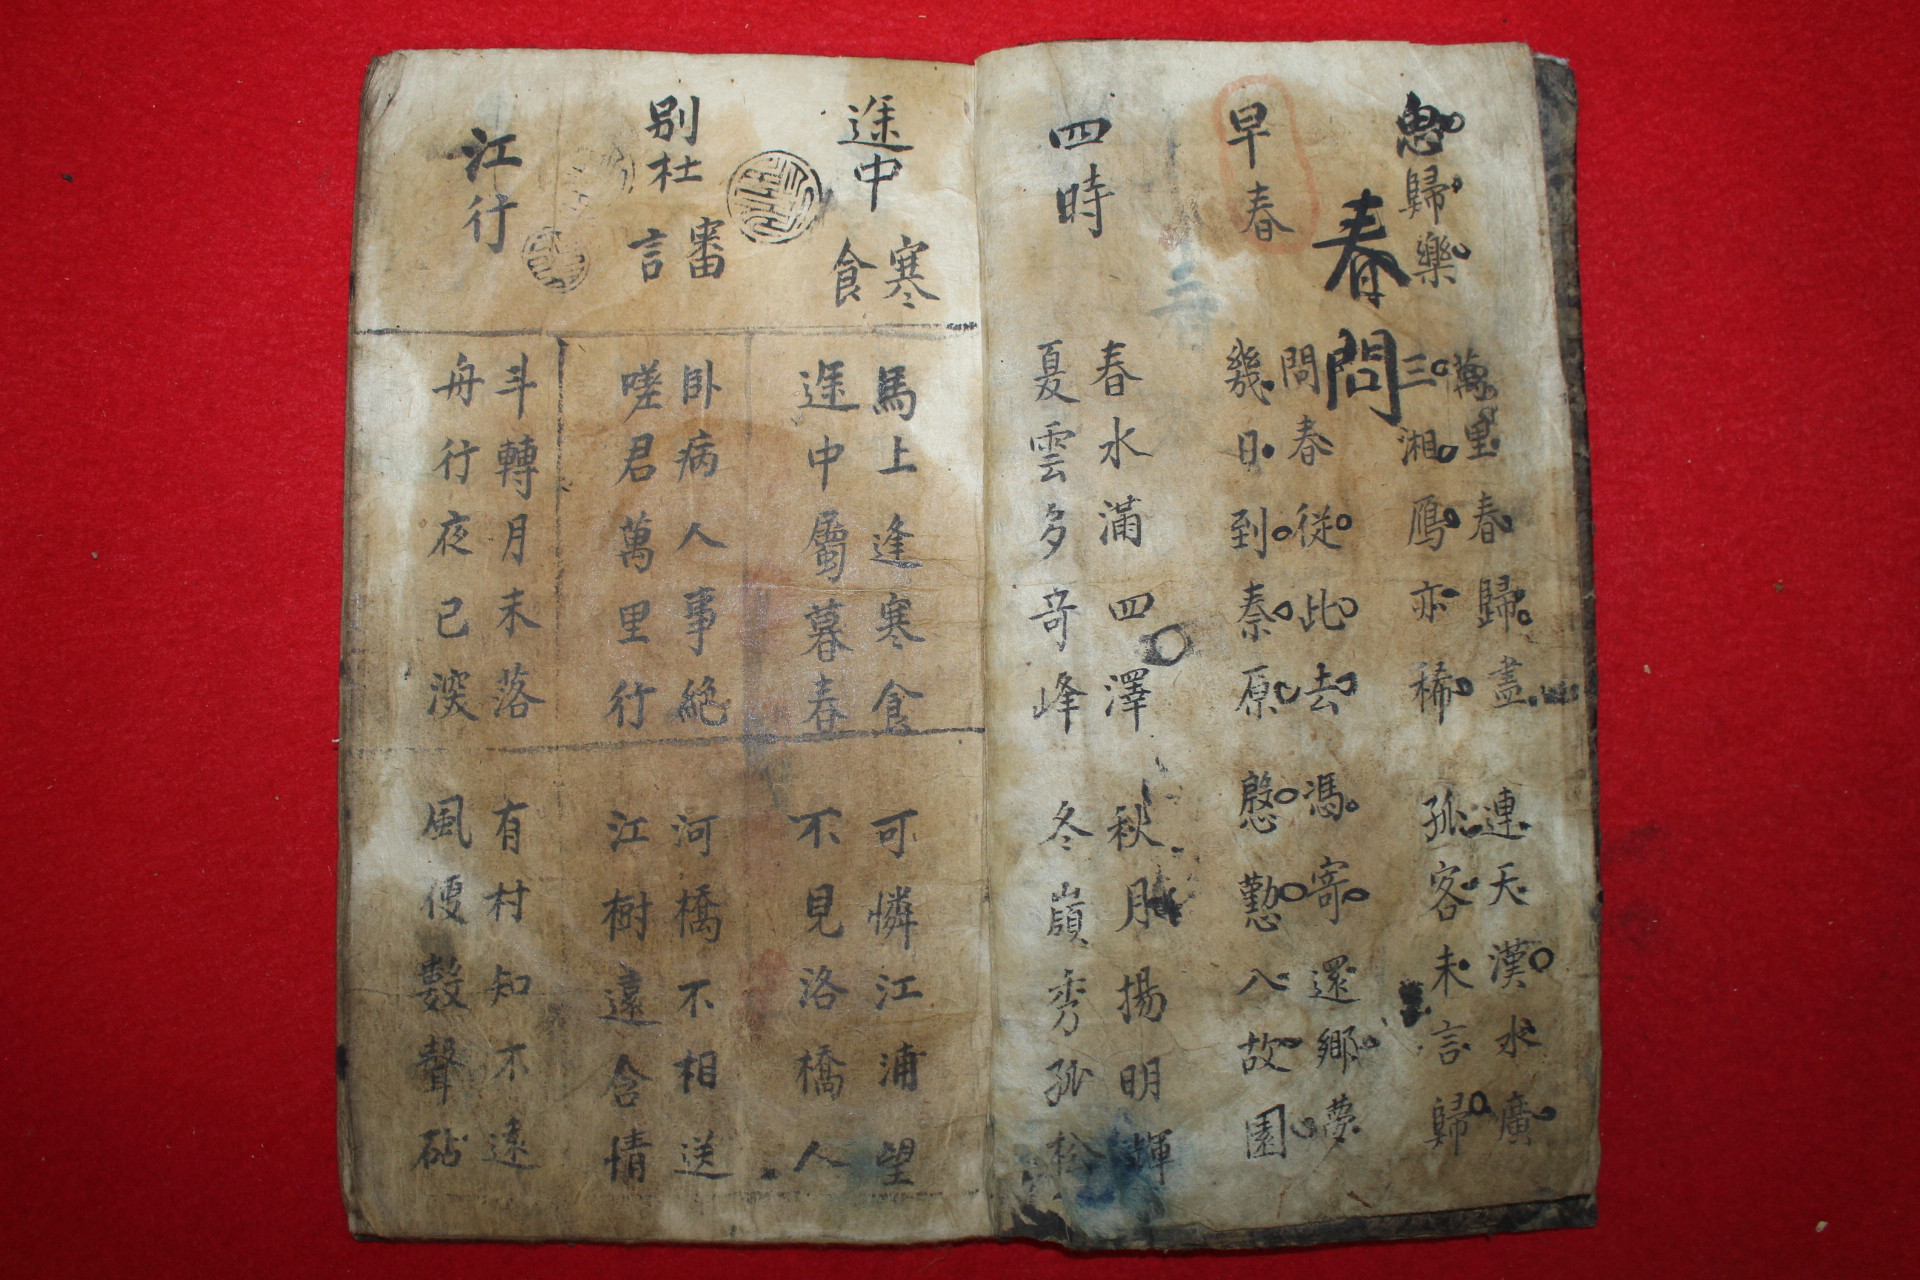 思歸樂
萬里春歸盡
三湘鴈亦稀
連天漢水廣
孤客未言歸
春問
早春
問春從此去
幾日到秦原
馮寄還鄉夢
慇懃入故園
四時
春水滿四澤
夏雲多奇峰
秋月揚明輝
冬嶺秀孤松
途中寒食
馬上逢寒食
途中屬暮春
可憐江浦望
不見洛橋人
別杜審言
卧病人事絶
嗟君萬里行
河橋不相送
江樹遠含情
江行
斗轉月未落
舟行夜已深
有村知不遠
風便數聲砧